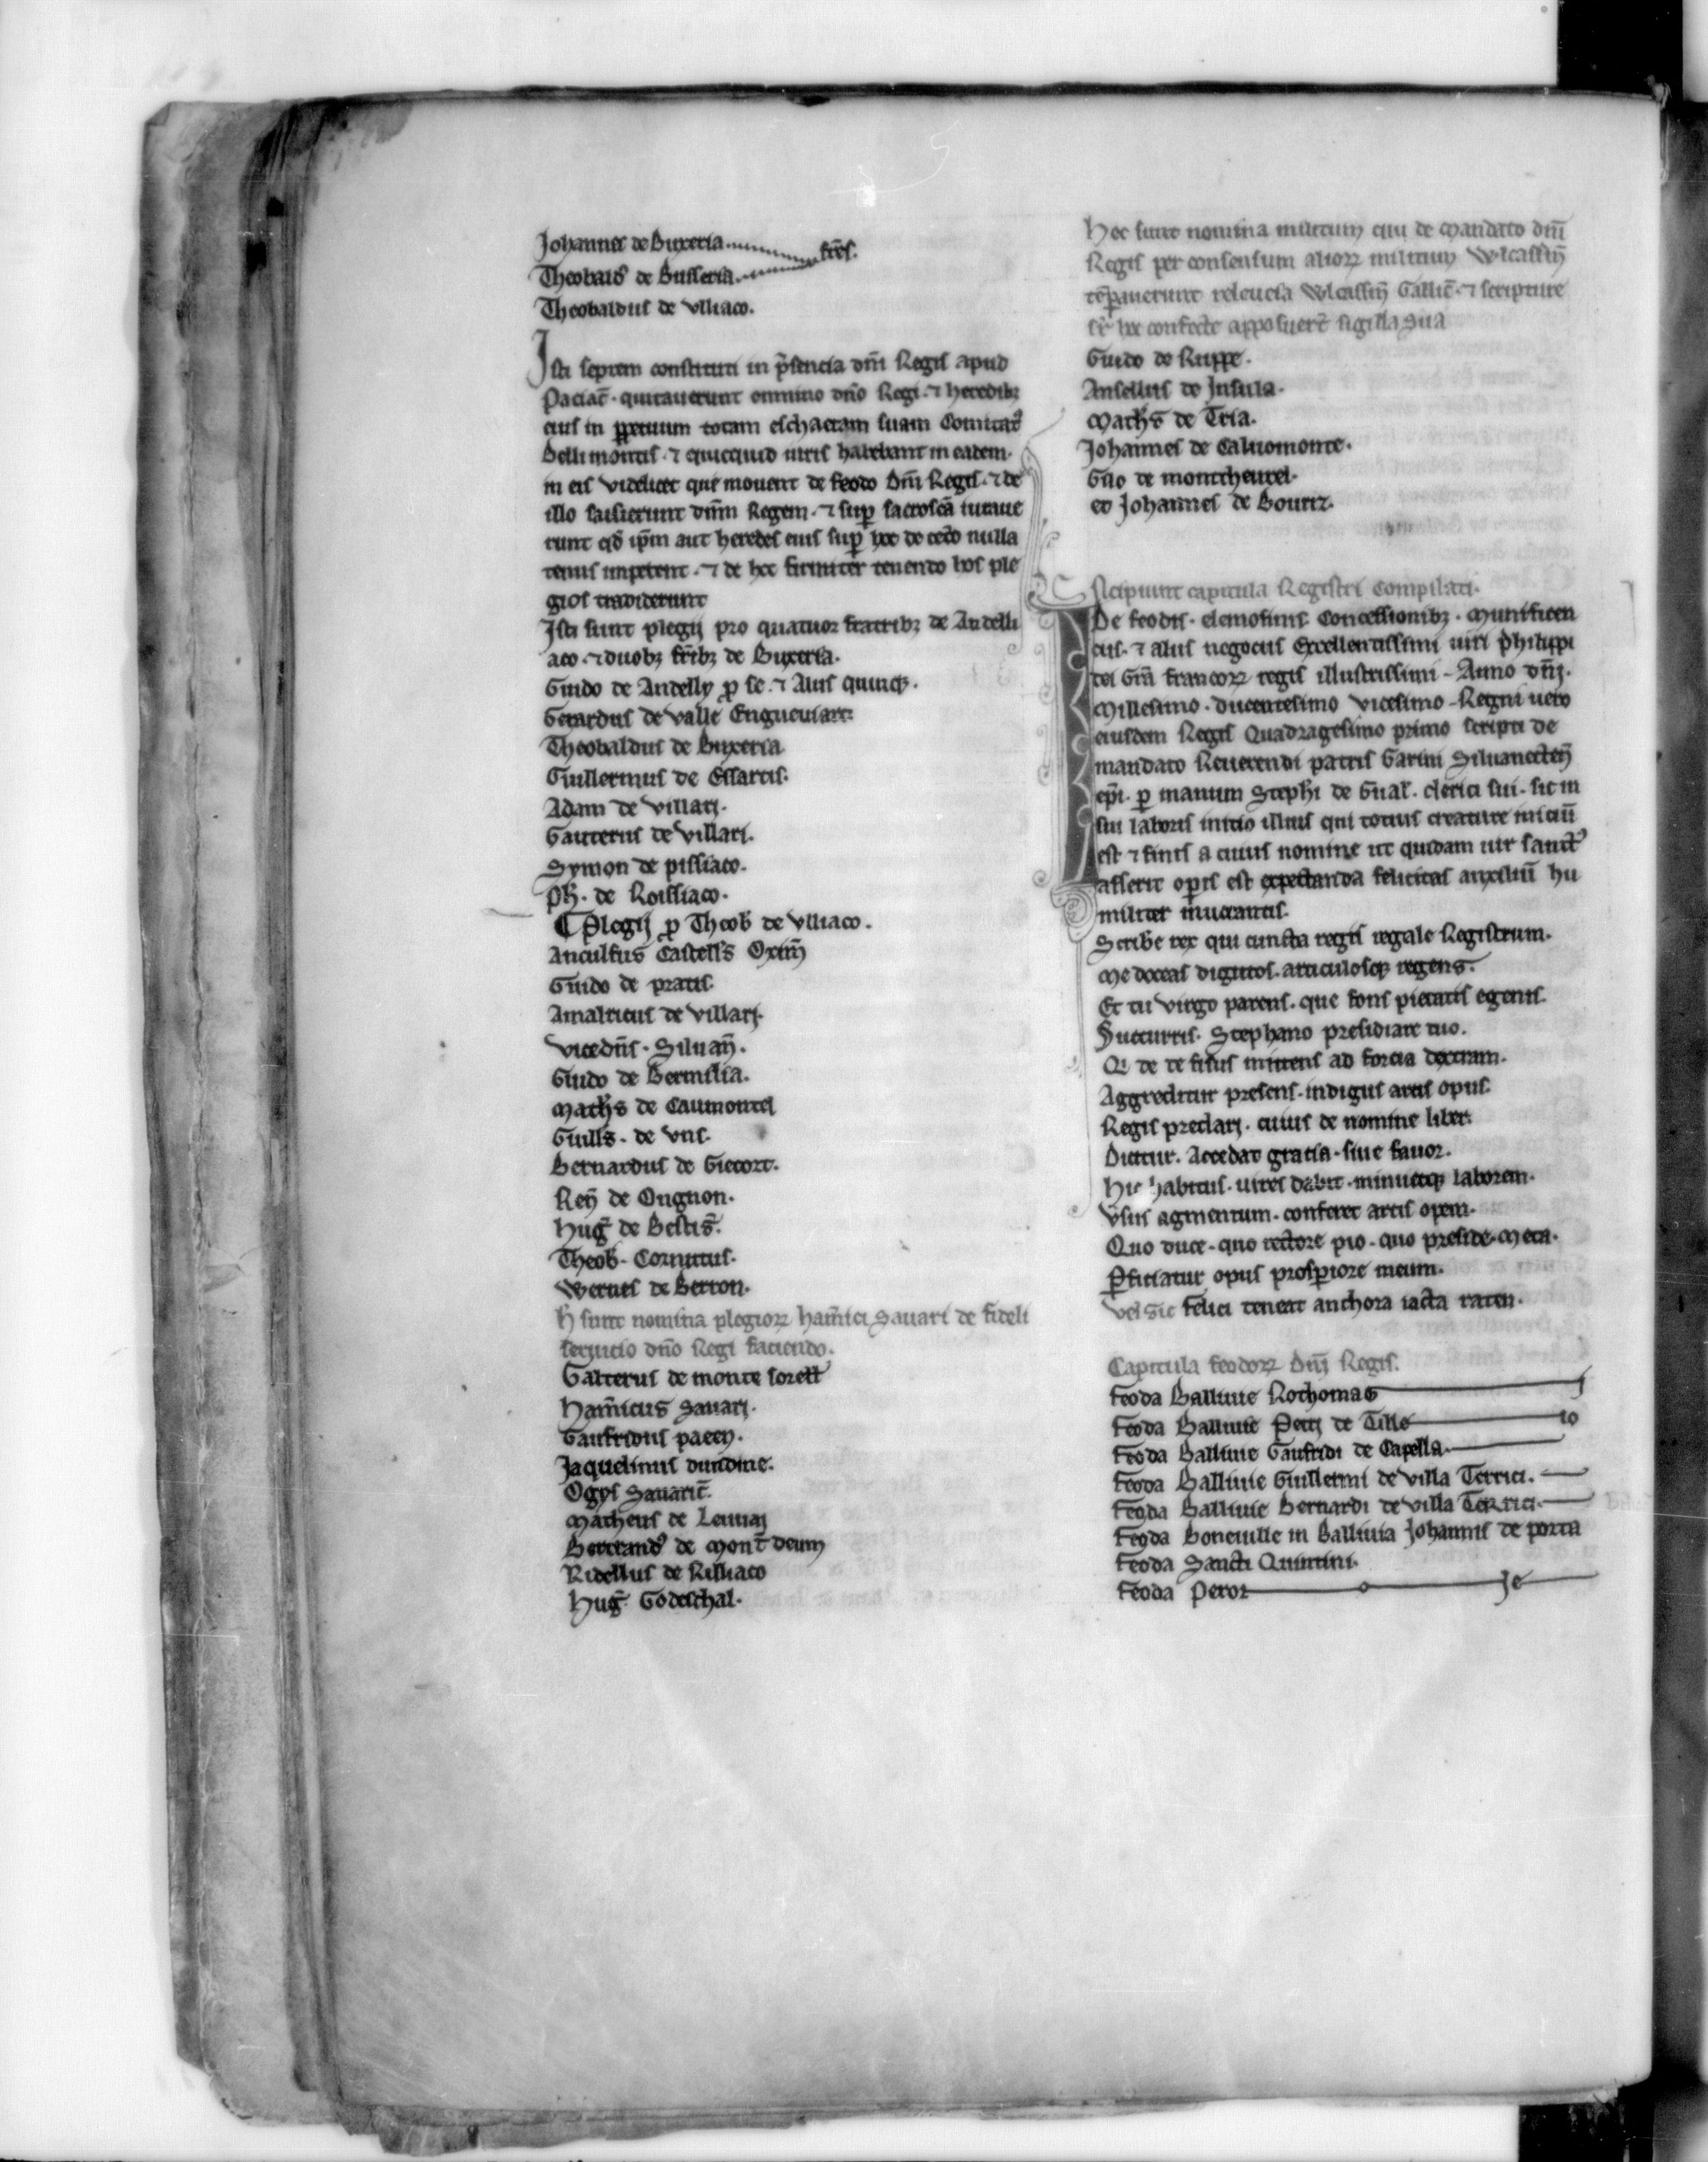 Johannes de Buxeria
frēs.
Theobald9 de Busseria.
Theobaldus de Ulliaco.
Isti septem constituti in p̄sencia dn̄i Regis apud
Paciac̄. quitaverunt omnino dn̄o Regi. ⁊ heredibꝫ
eius in ꝑpetuum totam eschaetam suam Comitat9
Bellimontis. ⁊ quicquid iuris habebant in eadem.
in eis videlicet que movent de feodo Dn̄i Regis. ⁊ de
illo saisierunt dn̄m Regem. ⁊ suꝑ sacrosc̄a iurave
runt qd̄ ip̄m aut heredes eius suꝑ hoc de cet̄o nulla
tenus impetent. ⁊ de hoc firmiter tenendo hos ple
gios tradiderunt
Isti sunt plegij pro quatuor fratribꝫ de Andelli
aco. ⁊ duobꝫ fr̄ibꝫ de Buxeria.
Guido de Andelly ꝓ se. ⁊ Aliis quinqꝫ.
Gerardus de valle Engueuiart.
Theobaldus de Buxeria
Guillermus de Essartis.
Adam de villari.
Gauterus de villari.
Symon de pissiaco.
Ph̄. de Roissiaco.
¶ Plegij ꝓ Theob̄ de Ulliaco.
Anculfus Castell's
Guido de pratis.
Amalricus de villarj.
vicedn̄s. Silvan̄.
Guido de Bermilia.
Math̄s de Caumontel
Guill's. de vns.
Bernardus de Giecort.
Reñ de Ongnon.
Hug̃ de Bestis̃.
Theob̄. Cornutus.
Wernes de Berron.
H̄ sunt nomina plegiorꝫ ham̄ici Savari de fideli
servicio dn̄o Regi faciendo.
Galterus de monte sorell
Ham̄icus Savarj.
Gaufridus paeen.
Jaquelinus dundine.
Ogys Savaric̄.
Matheus de
Bertrand9 de Mont̄ deum
Ridellus de Rilliaco
Hug̃ Godeschal.
Hec sunt nomina militum qui de mandato dn̄i
Regis per consensum aliorꝫ militum Wlcassin̄
tēp̄averunt releveia Wlcassin̄ Gallic̄. ⁊ scripture
sr̄ hoc confecte apposuer̄t sigilla sua
Guido de Ruppe.
Ansellus de Insula.
Math̄s de Tria.
Johannes de Calvomonte.
Guo de montcheurel.
et Johannes de Bouriz.
Incipiunt capitula Registri Compilati.
De feodis. elemosinis. Concessionibꝫ. Munificen
ciis. ⁊ aliis negociis Excellentissimi viri Philippi
dei Grā francorꝫ regis illustrissimi. Anno dn̄j.
Millesimo. ducentesimo vicesimo. Regni vero
eiusdem Regis Quadragesimo primo scripti de
mandato Reverendi patris Garini Silvanecten̄
ep̄i. ꝑ manum Steph̄i de Gual̄. clerici sui. sit in
sui laboris initio illius qui totius creature iniciū
est ⁊ finis a cuius nomine ut quidam vir sanct9
asserit oꝑis est expectanda felicitas auxiliū hu
militer invocantis.
Scribe rex qui cuncta regis regale Registrum.
Me doceas digitos. articulosqꝫ regens.
Et tu virgo parens. que fons pietatis egenis.
Succurris. Stephano presidiare tuo.
Qi de te fisus mittens ad forcia dextram.
Aggreditur presens. indigus artis opus.
Regis preclarj. cuius de nomine liber.
Dicitur. Accedat gratia. sive favor.
Hic habitus. vires dabit. minuetqꝫ laborem.
v̄sus agmentum. conferet artis opem.
Quo duce. quo rectore pio. quo preside. Meta.
ꝑficiatur opus prosꝑiore meum.
Vel sic felici teneat anchora iacta ratem.
Capitula feodorꝫ Dn̄j Regis.
Feoda Ballivie Rothomag j
Feoda Ballivie Petrj de Tille io
Feoda Ballivie Gaufridi de Capella.
Feoda Ballivie Guillermi de villa Terrici.
Feoda Ballivie Bernardi de villa Terrici.
Feoda Boneville in Ballivia Johannis de porta
Feoda Sancti Quintini.
Feoda Peron